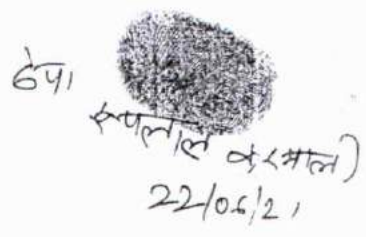 ठेपा
रूपलाल करमाल)
22/06/21